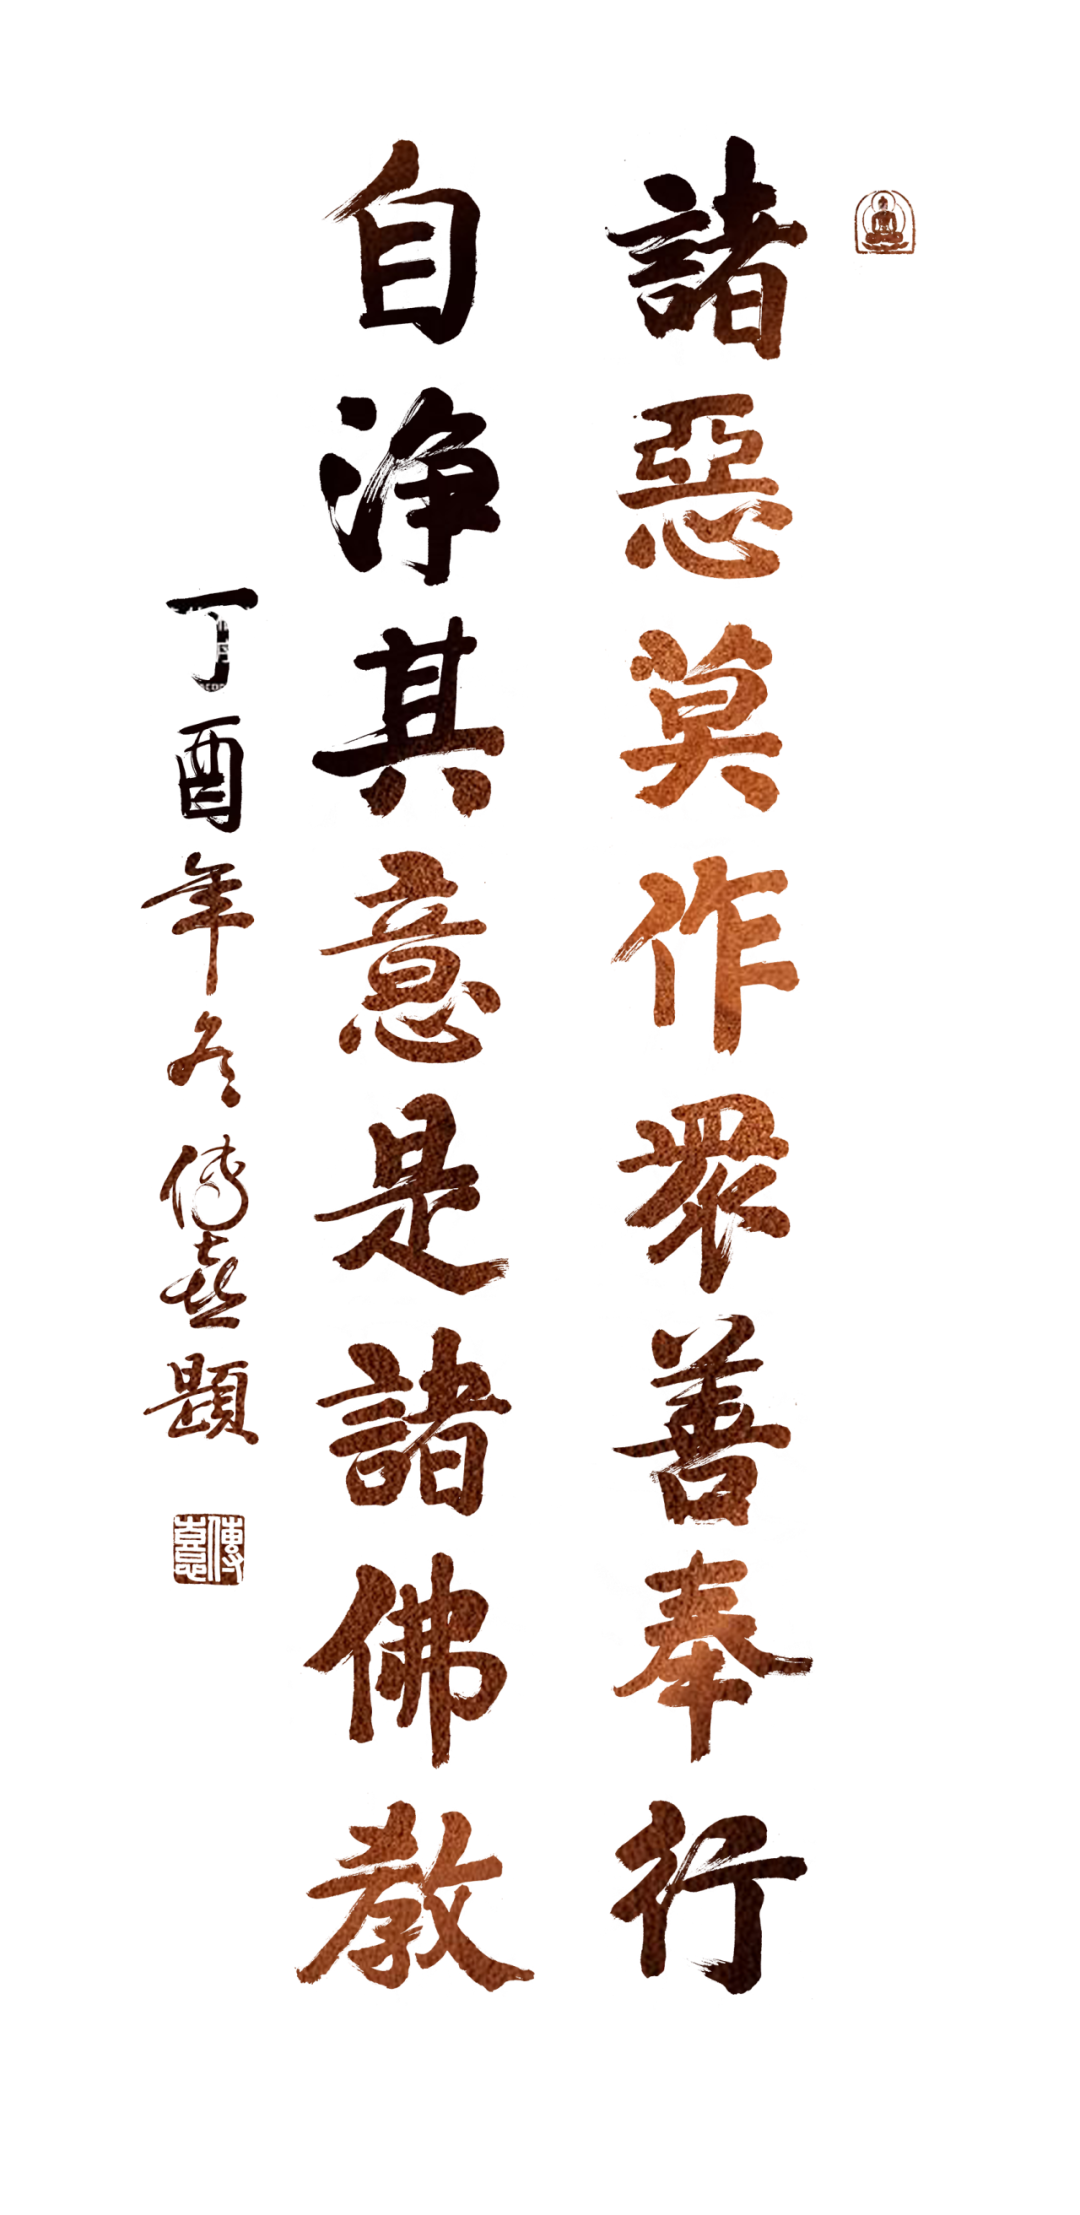 諸惡莫作眾善奉行
自淨其意是諸佛教
丁酉年冬傳喜題
傳喜